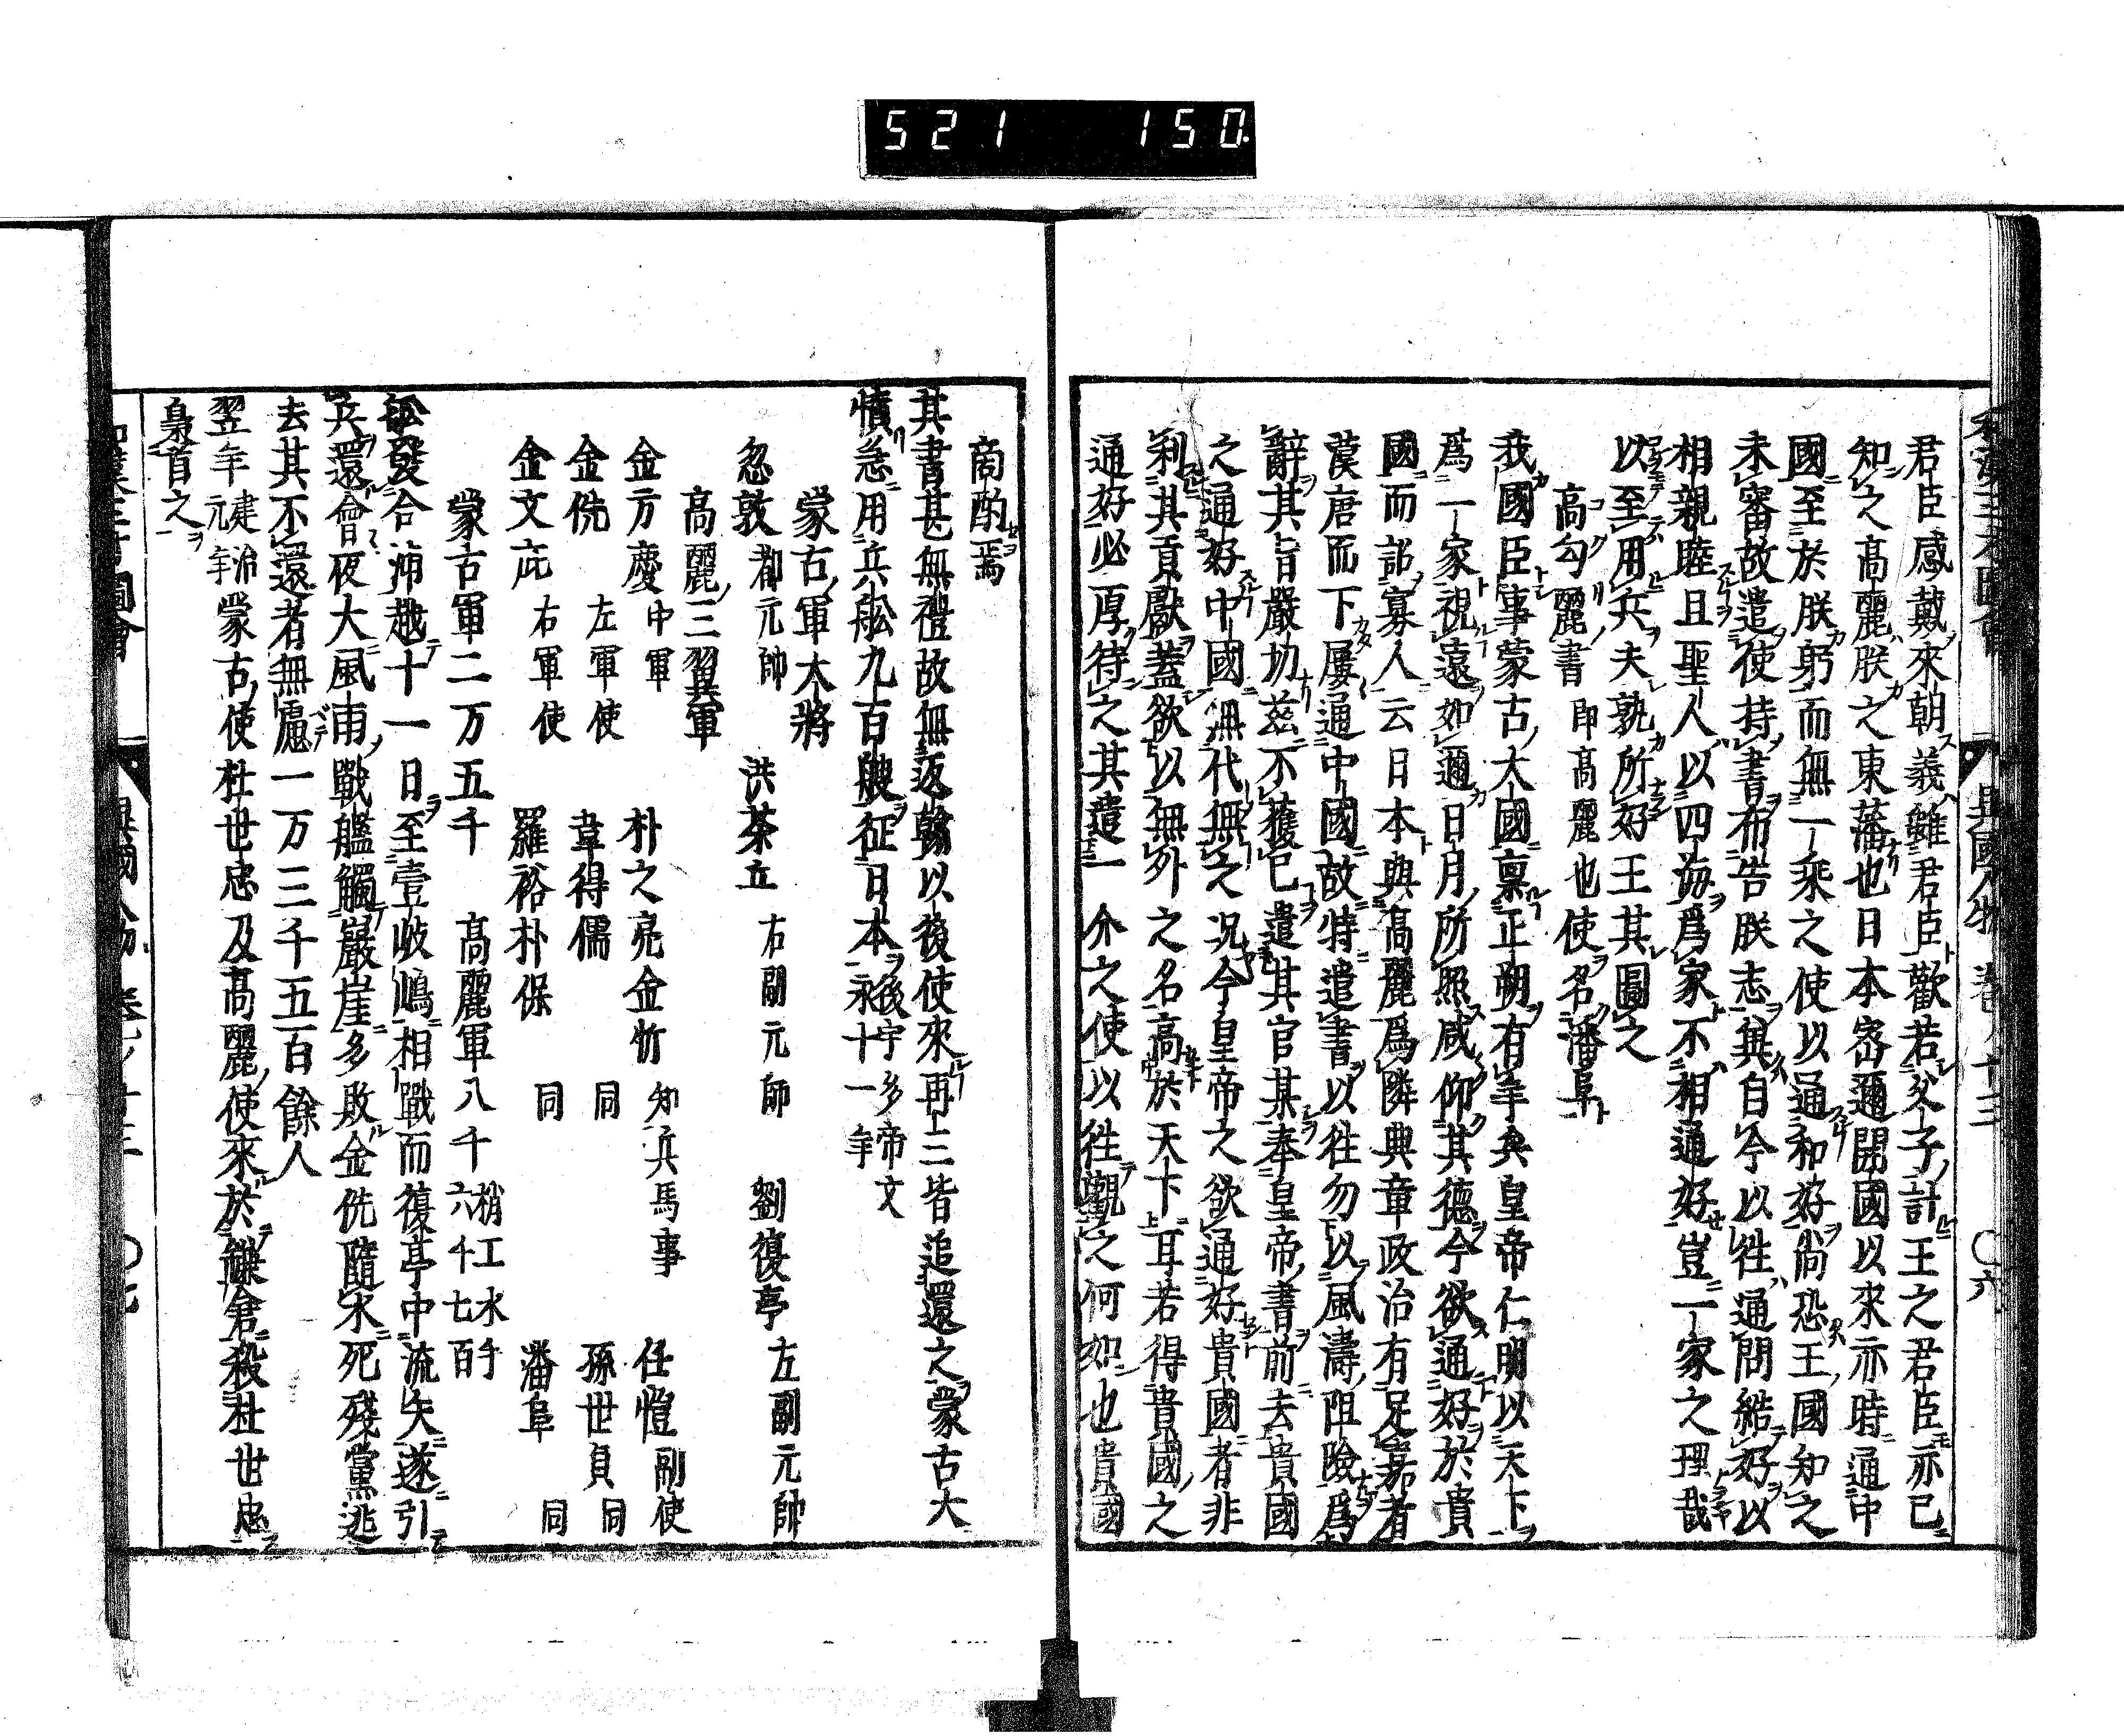 521 150
和漢三才圖會 異國人物 卷ノ十三 〇六
君臣感戴來朝義雖君臣歡若父子計王之君臣亦已
知之高麗朕之東藩也日本密邇開國以來亦時通中
國至於朕躬而無一乘之使以通和好尚恐王國知之
未審故遣使持書布告朕志冀自今以徃通問結好以
相親睦且聖人以四海爲家不相通好豈一家之理哉
以至用兵夫孰所好王其圖之
高勾麗書 即高麗也使名潘阜
我國臣事蒙古大國稟正朔有年矣皇帝仁明以天下
爲一家視遠如邇日月所照咸仰其德今欲通好於貴
國而詔寡人云日本與高麗爲隣典章政治有足嘉者
漢唐而下屢通中國故特遣書以徃勿以風濤阻險爲
辭其旨嚴切茲不獲已遣其官某奉皇帝書前去貴國
之通好中國無代無之况今皇帝之欲通好貴國者非
利其貢獻蓋欲以無外之名高於天下耳若得貴國之
通好必厚待之其遣一介之使以徃觀之何如也貴國
商酌焉
其書甚無禮故無返翰以後使來再三皆追還之蒙古大
憤急用兵舩九百艘征日本 後宇多帝文永十一年
蒙古軍大將
忽敦 都元帥 洪茶丘 右副元帥 劉復亭 左副元帥
高麗三翼軍
金方慶 中軍 朴之亮金忻 知兵馬事 任愷 副使
金侁 左軍使 韋得儒 同 孫世貞 同
金文庇 右軍使 羅裕朴保 同 潘阜 同
蒙古軍二万五千 高麗軍八千 梢工水手六千七百
舩發合浦越十一日至壹岐嶋相戰而復亭中流矢遂引
兵還會夜大風雨戰艦觸巖崖多敗金侁隨水死殘黨逃
去其不還者無慮一万三千五百餘人
翌年 建治元年 蒙古使杜世忠及高麗使來於鎌倉殺杜世忠
梟首之